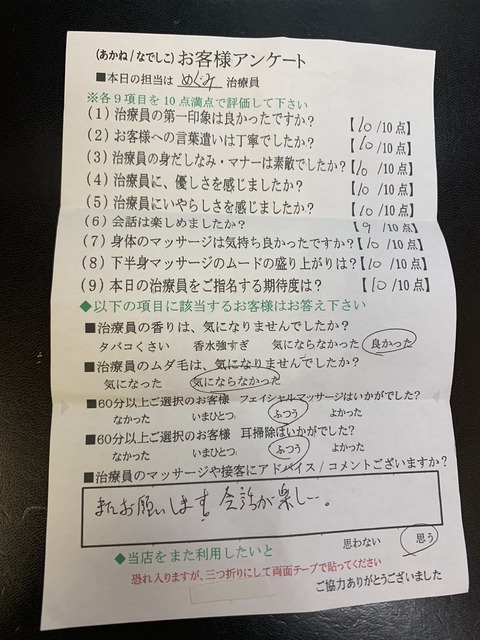 (あかね/なでしこ)お客様アンケート
■本日の担当は めぐみ 治療員
※各9項目を10点満点で評価して下さい
(1)治療員の第一印象は良かったですか? 【10/10点】
(2)お客様への言葉遣いは丁寧でしたか? 【10/10点】
(3)治療員の身だしなみ・マナーは素敵でしたか?【10/10点】
(4)治療員に、優しさを感じましたか? 【10/10点】
(5)治療員にいやらしさを感じましたか? 【10/10点】
(6)会話は楽しめましたか? 【9/10点】
(7)身体のマッサージは気持ち良かったですか?【10/10点】
(8)下半身マッサージのムードの盛り上がりは?【10/10点】
(9)本日の治療員をご指名する期待度は? 【10/10点】
◆以下の項目に該当するお客様はお答え下さい
■治療員の香りは、気になりませんでしたか?
タバコくさい 香水強すぎ 気にならなかった 良かった
■治療員のムダ毛は、気になりませんでしたか?
気になった 気にならなかった
■60分以上ご選択のお客様 フェイシャルマッサージはいかがでした?
なかった いまひとつ ふつう よかった
■60分以上ご選択のお客様 耳掃除はいかがでした?
なかった いまひとつ ふつう よかった
■治療員のマッサージや接客にアドバイス/コメントございますか?
またお願いします 会話が楽しー。
◆当店をまた利用したいと 思わない 思う
恐れ入りますが、三つ折りにして両面テープで貼ってください
ご協力ありがとうございました